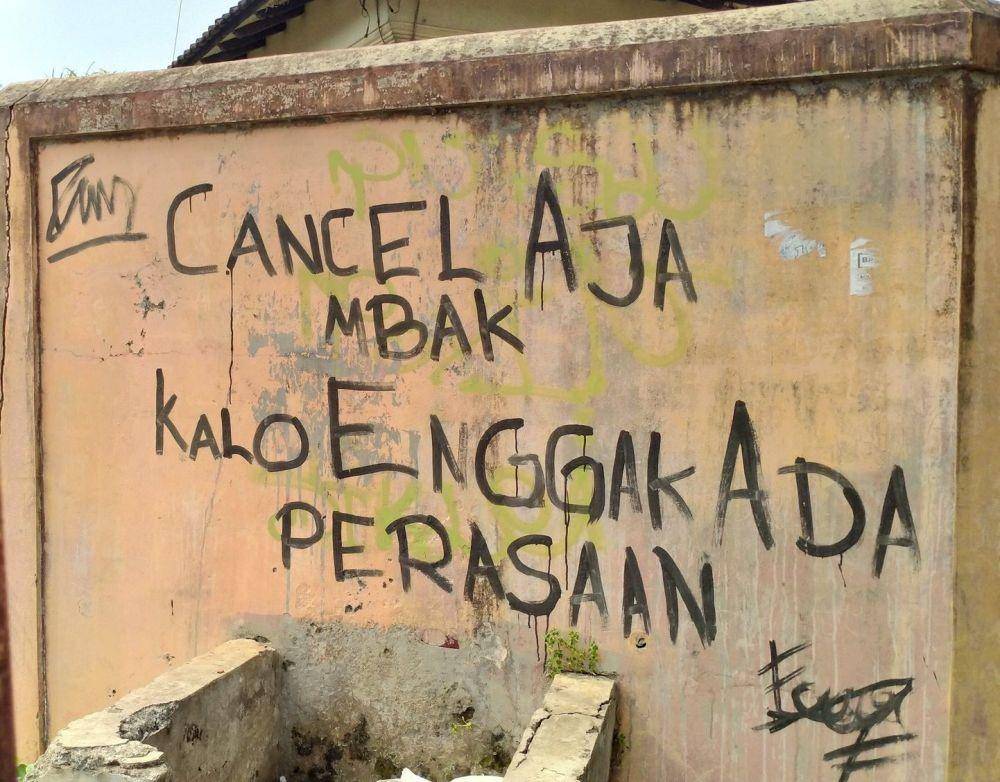 CANCEL AJA
MBAK
KALO ENGGAK ADA
PERASAAN